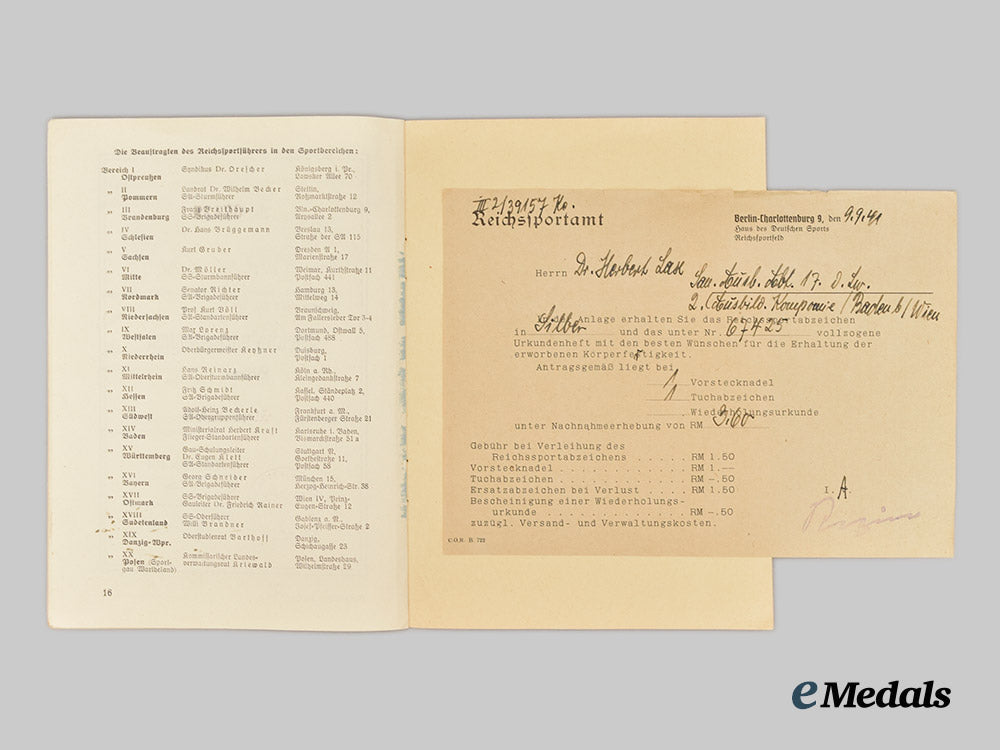 Die Beauftragten des Reichssportführers in den Sportbereichen:
Bereich I Syndikus Dr. Drescher Königsberg i. Pr.,
Ostpreußen Lawsker Allee 70
„ II Landrat Dr. Wilhelm Becker Stettin,
Pommern SA-Sturmführer Roßmarktstr. 12
„ III Franz Breithaupt Bln.-Charlottenburg 9,
Brandenburg SS-Brigadeführer Arysallee 2
„ IV Dr. Hans Brüggemann Breslau 13,
Schlesien Straße der SA 115
„ V Kurt Gruber Dresden A 1,
Sachsen Marienstraße 17
„ VI Dr. Möller Weimar, Kurthstraße 11
Mitte SS-Sturmbannführer Postfach 441
„ VII Senator Richter Hamburg 13,
Nordmark SA-Brigadeführer Mittelweg 14
„ VIII Prof Kurt Völl Braunschweig,
Niedersachsen SA-Standartenführer Am Fallersleber Tor 3-4
„ IX Max Lorenz Dortmund, Ostwall 5,
Westfalen SA-Brigadeführer Postfach 488
„ X Oberbürgermeister Keyßner Duisburg,
Niederrhein Postfach 1
„ XI Hans Reinarz Köln a. Rh.,
Mittelrhein SA-Obersturmbannführer Kleingedankstraße 7
„ XII Fritz Schmidt Kassel, Ständeplatz 2,
Hessen SA-Brigadeführer Postfach 440
„ XIII Adolf-Heinz Beckerle Frankfurt a. M.,
Südwest SA-Obergruppenführer Fürstenberger Straße 21
„ XIV Ministerialrat Herbert Kraft Karlsruhe i. Baden,
Baden Flieger-Standartenführer Bismarckstraße 51 a
„ XV Gau-Schulungsleiter Stuttgart N,
Württemberg Dr. Eugen Klett Goethestraße 11,
SA-Standartenführer Postfach 58
„ XVI Georg Schneider München 15,
Bayern SA-Brigadeführer Herzog-Heinrich-Str. 38
„ XVII SS-Brigadeführer Wien IV, Prinz-
Ostmark Gauleiter Dr. Friedrich Rainer Eugen-Straße 12
„ XVIII SS-Oberführer Gablonz a. N.,
Sudetenland Willi Brandner Josef-Pfeiffer-Straße 2
„ XIX Oberstudienrat Barthoff Danzig,
Danzig-Wpr. Schichaugasse 23
„ XX Kommissarischer Landes- Posen, Landeshaus,
Posen (Sport- verwaltungsrat Kriewald Wilhelmstraße 29
gau Wartheland)
16
III 2/39157 Ko.
Reichssportamt
Berlin-Charlottenburg 9, den 9.9.41
Haus des Deutschen Sports
Reichssportfeld
Herrn Dr. Herbert Lax
San. Ausb. Abt. 17. d. Lw.
2. Ausbild. Kompanie / Baden b/Wien
Anlage erhalten Sie das Reichssportabzeichen
in Silber und das unter Nr. 67425 vollzogene
Urkundenheft mit den besten Wünschen für die Erhaltung der
erworbenen Körperfertigkeit.
Antragsgemäß liegt bei
1 Vorstecknadel
Tuchabzeichen
Wiederholungsurkunde
unter Nachnahmeerhebung von RM 3.60
Gebühr bei Verleihung des
Reichssportabzeichens . . . . . RM 1.50
Vorstecknadel . . . . . . . . . . . RM 1.--
Tuchabzeichen . . . . . . . . . . . RM -.50
Ersatzabzeichen bei Verlust . . . . RM 1.50
Bescheinigung einer Wiederholungs-
urkunde . . . . . . . . . . . . RM -.50
zuzügl. Versand- und Verwaltungskosten.
I. A.
C.O.R. B. 722
eMedals